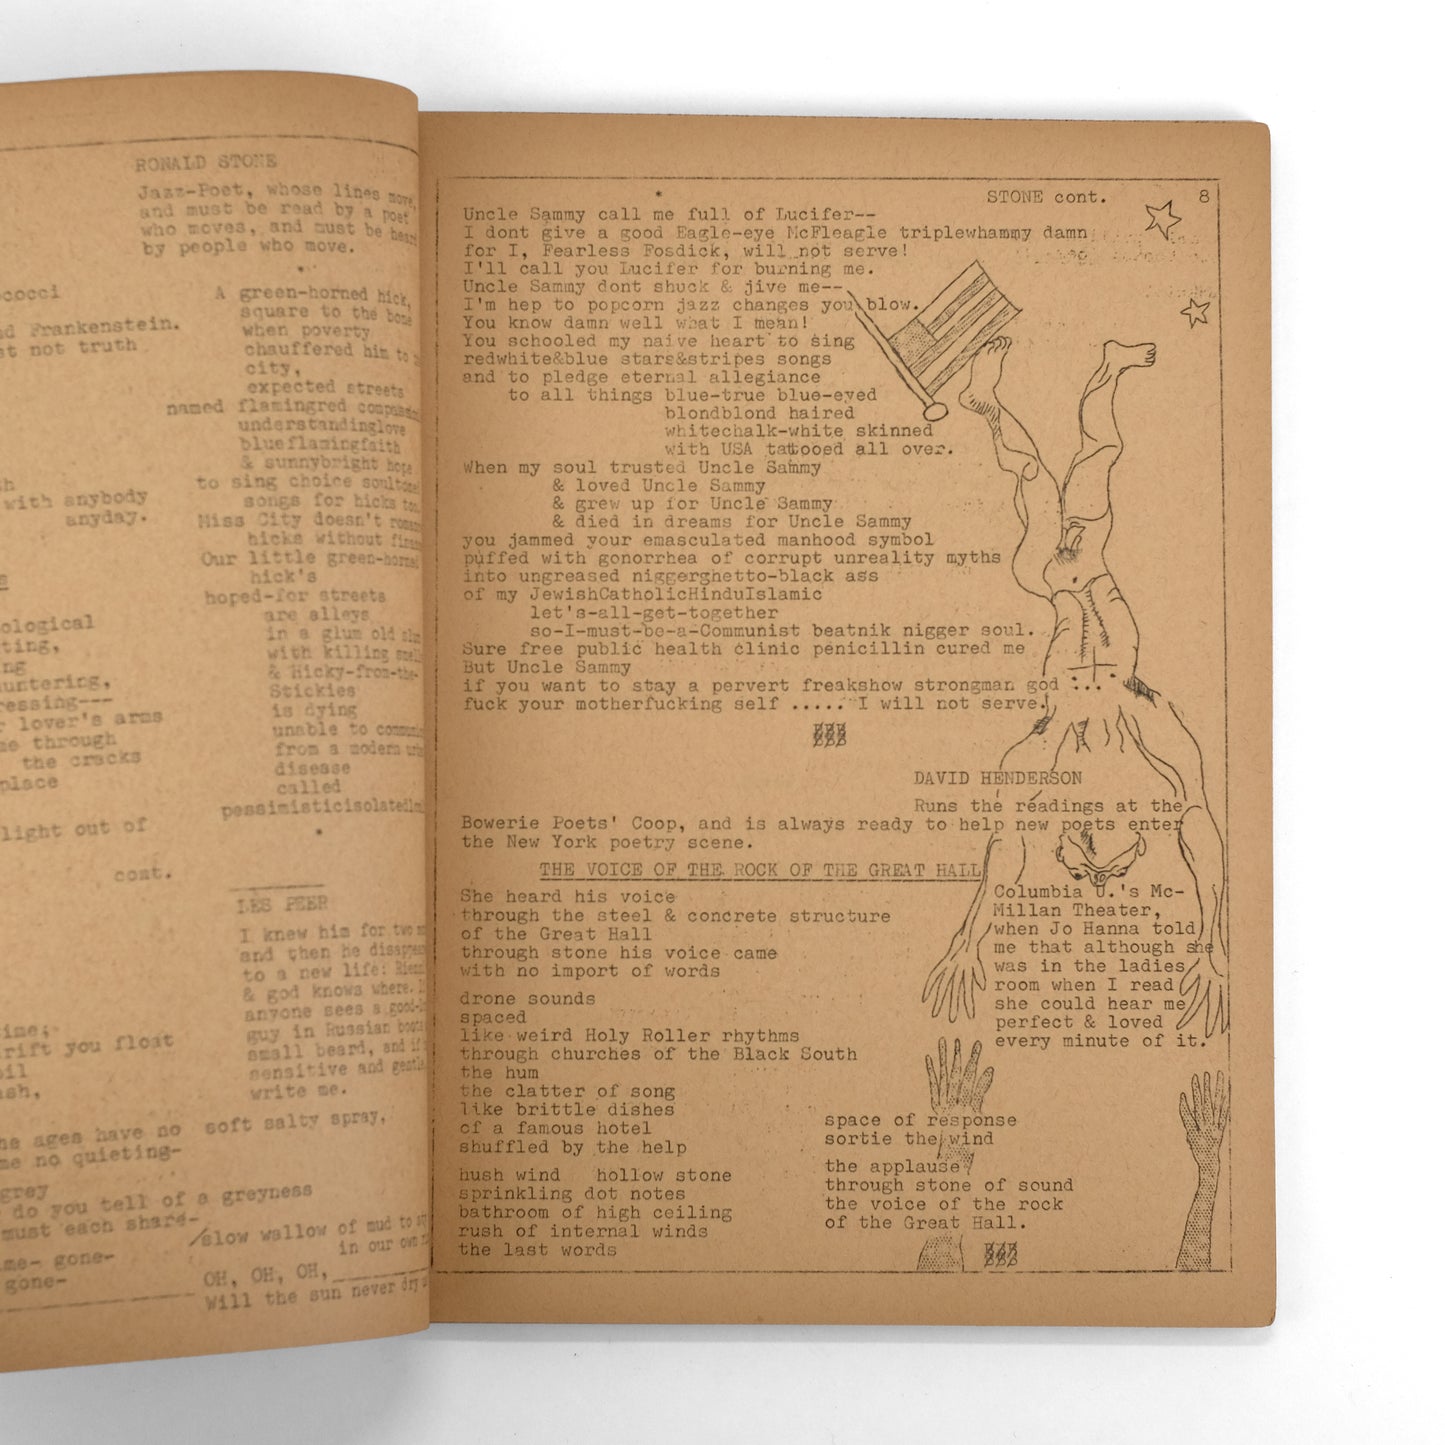 RONALD STONE
Jazz-Poet, whose lines move,
and must be read by a poet
who moves, and must be heard
by people who move.
A green-horned hick,
square to the bone
when poverty
chauffered him to
city,
expected streets
named flamingred
understandinglove
blueflamingfaith
& sunnybright hope
to sing choice
songs for hicks
Miss City doesn't
hicks without
Our little green-horned
hick's
hoped-for streets
are alleys
in a glum old
with killing
& Hicky-from-the-
Stickies
is dying
unable to
from a modern
disease
called
cococci
Frankenstein.
not truth
with anybody
anyday.
ological
ting,
ng
untering,
essing---
lover's arms
me through
the cracks
place
light out of
cont.
LES PEER
I knew him for two
and then he
to a new life:
& god knows where.
anyone sees a
guy in Russian boots
small beard, and if
sensitive and
write me.
rift you float
ages have no soft salty spray,
me no quieting-
grey
do you tell of a greyness
must each share-
slow wallow of mud to
in our own
me- gone-
gone-
OH, OH, OH,
Will the sun never dry
STONE cont. 8
Uncle Sammy call me full of Lucifer--
I dont give a good Eagle-eye McFleagle triplewhammy damn
for I, Fearless Fosdick, will not serve!
I'll call you Lucifer for burning me.
Uncle Sammy dont shuck & jive me--
I'm hep to popcorn jazz changes you blow.
You know damn well what I mean!
You schooled my naive heart to sing
redwhite&blue stars&stripes songs
and to pledge eternal allegiance
to all things blue-true blue-eyed
blondblond haired
whitechalk-white skinned
with USA tattooed all over.
When my soul trusted Uncle Sammy
& loved Uncle Sammy
& grew up for Uncle Sammy
& died in dreams for Uncle Sammy
you jammed your emasculated manhood symbol
puffed with gonorrhea of corrupt unreality myths
into ungreased niggerghetto-black ass
of my JewishCatholicHinduIslamic
let's-all-get-together
so-I-must-be-a-Communist beatnik nigger soul.
Sure free public health clinic penicillin cured me
But Uncle Sammy
if you want to stay a pervert freakshow strongman god ...
fuck your motherfucking self ..... I will not serve.
DAVID HENDERSON
Runs the readings at the
Bowerie Poets' Coop, and is always ready to help new poets enter
the New York poetry scene.
THE VOICE OF THE ROCK OF THE GREAT HALL
She heard his voice
through the steel & concrete structure
of the Great Hall
through stone his voice came
with no import of words
drone sounds
spaced
like weird Holy Roller rhythms
through churches of the Black South
the hum
the clatter of song
like brittle dishes
of a famous hotel
shuffled by the help
hush wind hollow stone
sprinkling dot notes
bathroom of high ceiling
rush of internal winds
the last words
Columbia U.'s Mc-
Millan Theater,
when Jo Hanna told
me that although she
was in the ladies
room when I read
she could hear me
perfect & loved
every minute of it.
space of response
sortie the wind
the applause
through stone of sound
the voice of the rock
of the Great Hall.